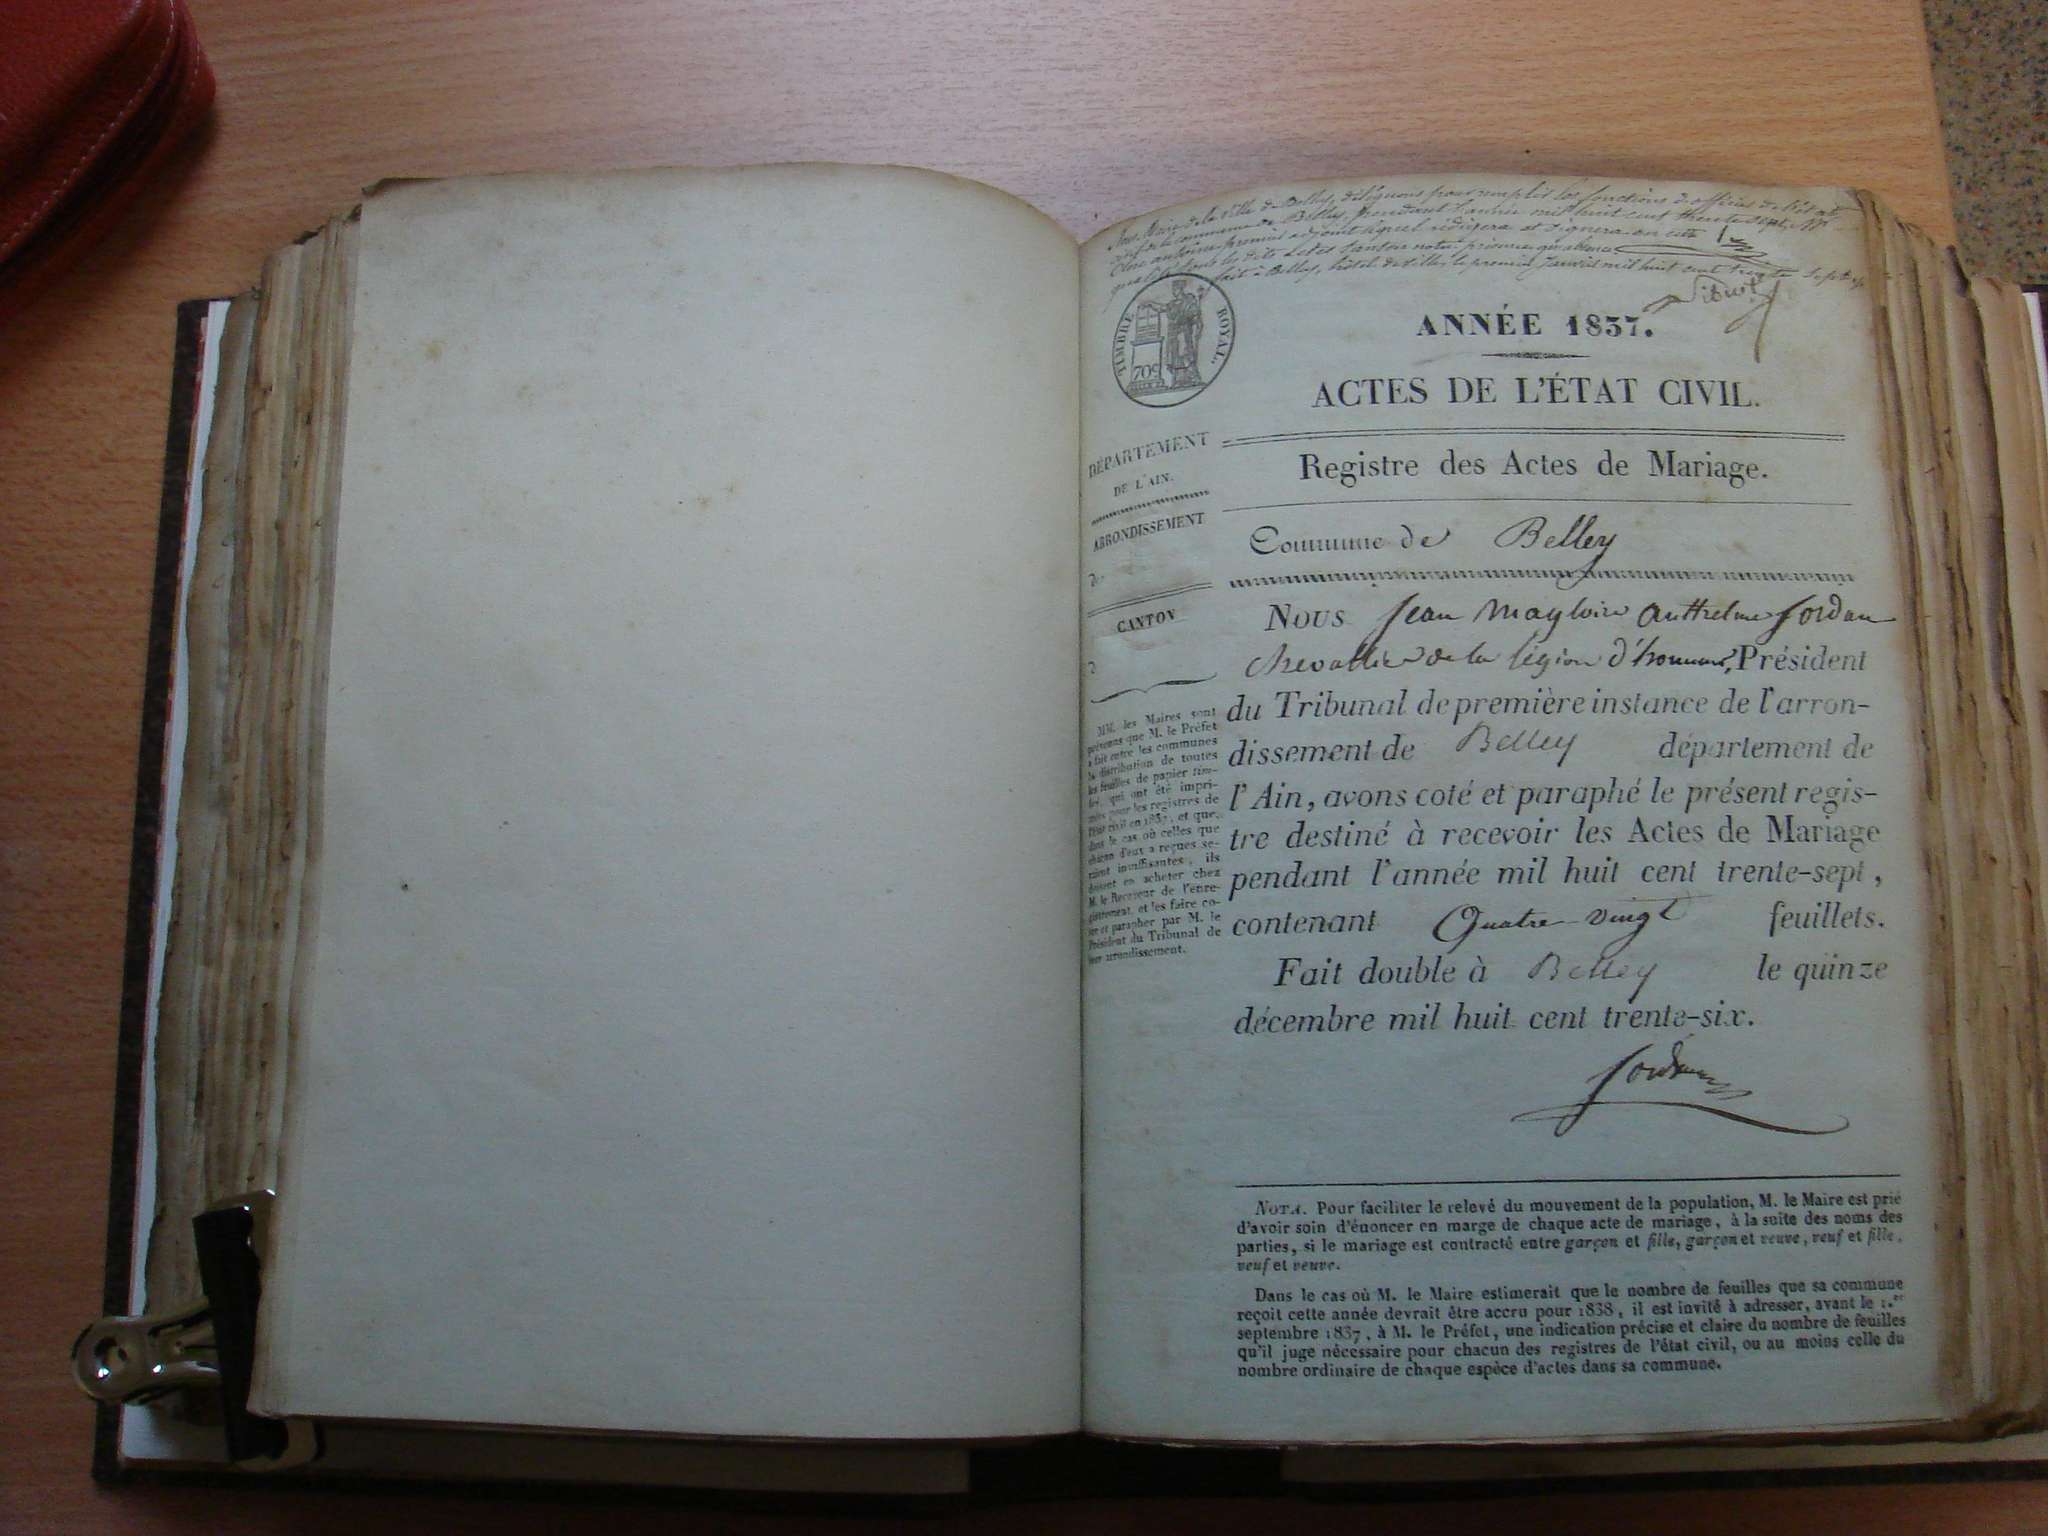 Nous Maire de la Ville de Belley, déléguons pour remplir les fonctions d'officier de l'état
civil de la commune de Belley, pendant l'année mil huit cent trente sept, Mr
Clerc antoine premier adjoint lequel rédigera et signera en cette
qualité tous les dits actes
fait à Belley, hôtel de Ville, le premier Janvier mil huit cent trente Sept
TIMBRE ROYAL.
70c
ANNÉE 1837.
ACTES DE L'ÉTAT CIVIL.
DÉPARTEMENT
DE L'AIN.
ARRONDISSEMENT
de
CANTON
d
MM. les Maires sont
prévenus que M. le Préfet
a fait entre les communes
la distribution de toutes
les feuilles de papier tim-
bré, qui ont été impri-
mées pour les registres de
l'état civil en 1837, et que,
dans le cas où celles que
chacun d'eux a reçues se-
raient insuffisantes, ils
doivent en acheter chez
M. le Receveur de l'enre-
gistrement, et les faire co-
ter et parapher par M. le
Président du Tribunal de
leur arrondissement.
Registre des Actes de Mariage.
Commune de Belley
Nous Jean Mayloire Anthelme Jordan
Chevallier de la légion d'honneur, Président
du Tribunal de première instance de l'arron-
dissement de Belley département de
l'Ain, avons coté et paraphé le présent regis-
tre destiné à recevoir les Actes de Mariage
pendant l'année mil huit cent trente-sept,
contenant Quatre vingt feuillets.
Fait double à Belley le quinze
décembre mil huit cent trente-six.
Jordan
NOTA. Pour faciliter le relevé du mouvement de la population, M. le Maire est prié
d'avoir soin d'énoncer en marge de chaque acte de mariage, à la suite des noms des
parties, si le mariage est contracté entre garçon et fille, garçon et veuve, veuf et fille,
veuf et veuve.
Dans le cas où M. le Maire estimerait que le nombre de feuilles que sa commune
reçoit cette année devrait être accru pour 1838, il est invité à adresser, avant le 1.er
septembre 1837, à M. le Préfet, une indication précise et claire du nombre de feuilles
qu'il juge nécessaire pour chacun des registres de l'état civil, ou au moins celle du
nombre ordinaire de chaque espèce d'actes dans sa commune.